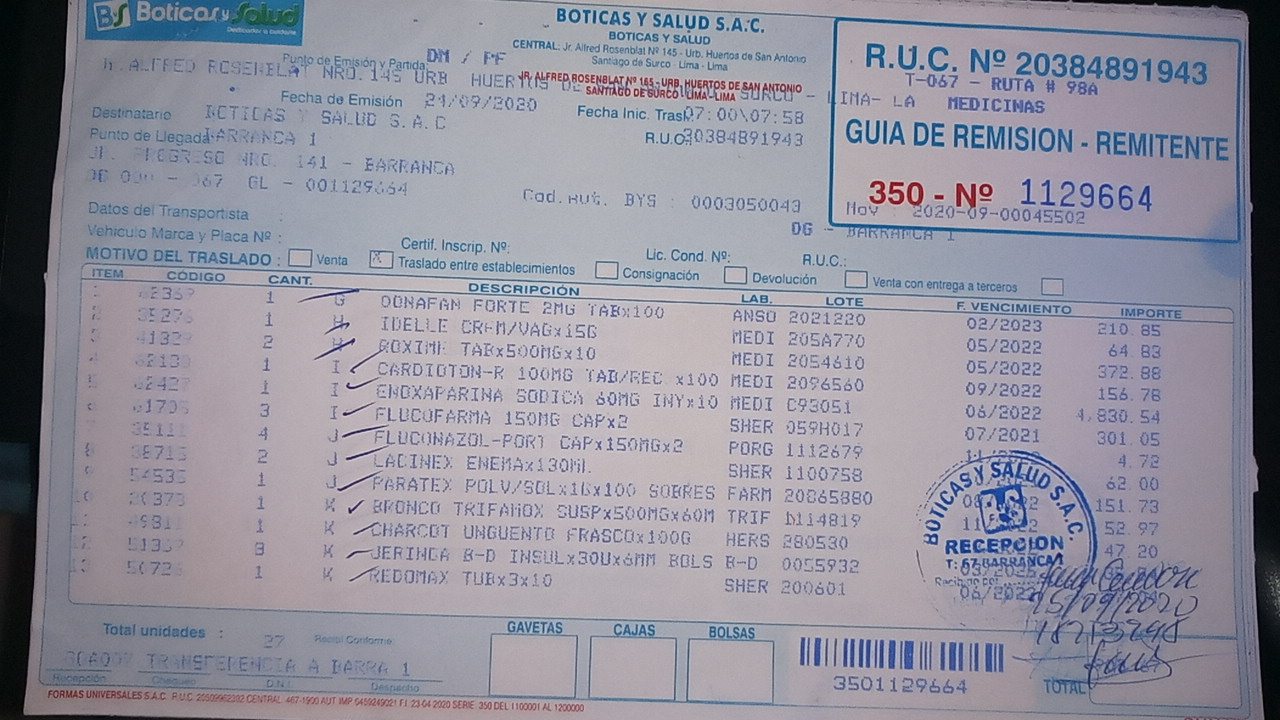 BS Boticas y Salud
BOTICAS Y SALUD S.A.C.
BOTICAS Y SALUD
CENTRAL. Jr. Alfred Rosenblat Nº 145 - Urb. Huertos de San Antonio
Santiago de Surco - Lima - Lima
JR. ALFRED ROSENBLAT Nº 165 - URB. HUERTOS DE SAN ANTONIO
SANTIAGO DE SURCO - LIMA - LIMA
R.U.C. Nº 20384891943
T-067 - RUTA # 98A
MEDICINAS
GUIA DE REMISION - REMITENTE
350 - Nº 1129664
Mov 2020-09-00045502
Punto de Emisión y Partida DM / PF
ALFRED ROSENBLAT NRO. 145 URB HUERTOS DE SURCO - LIMA- LA
Fecha de Emisión 24/09/2020
Fecha Inic. Trasl. 07:00\07:58
Destinatario BOTICAS Y SALUD S.A.C
R.U.C.
Punto de Llegada BARRANCA 1
JR. PROGRESO NRO. 141 - BARRANCA
067 GL - 001129664
Cod. Aut. BYS : 0003050043
DG - BARRANCA 1
Datos del Transportista :
Vehículo Marca y Placa Nº :
Certif. Inscrip. Nº:
Lic. Cond. Nº:
R.U.C.:
MOTIVO DEL TRASLADO : Venta X Traslado entre establecimientos Consignación Devolución Venta con entrega a terceros
ITEM CÓDIGO CANT. DESCRIPCIÓN LAB. LOTE F. VENCIMIENTO IMPORTE
1 G DONAFAN FORTE 2MG TABx100 ANSO 2021220 02/2023 210.85
2 35276 1 H IDELLE CREM/VAGx15G MEDI 205A770 05/2022 64.83
2 H ROXIME TABx500MGx10 MEDI 2054610 05/2022 372.88
1 I CARDIOTON-R 100MG TAB/REC x100 MEDI 2096560 09/2022 156.78
62427 1 I ENOXAPARINA SODICA 60MG INYx10 MEDI C93051 06/2022 4,830.54
61705 3 I FLUCOFARMA 150MG CAPx2 SHER 059H017 07/2021 301.05
35111 4 J FLUCONAZOL-PORT CAPx150MGx2 PORG 1112679 4.72
38715 2 J LACINEX ENEMAx130ML SHER 1100758 62.00
54535 1 J PARATEX POLV/SOLx1Gx100 SOBRES FARM 20865880 151.73
20373 1 K BRONCO TRIFAMOX SUSPx500MGx60M TRIF 52.97
1 K CHARCOT UNGUENTO FRASCOx100G HERS 280530 47.20
3 K JERINGA B-D INSULx30Ux6MM BOLS B-D 0055932
50726 1 K REDOMAX TUBx3x10 SHER 200601 06/2022
BOTICAS Y SALUD S.A.C.
RECEPCION
T: 67 BARRANCA 1
Recibido por
25/09/2020
Total unidades : 27 Recibí Conforme
TRANSFERENCIA A BARRA 1
Recepción Chequeo D.N.I. Despacho
GAVETAS CAJAS BOLSAS
3501129664
TOTAL
FORMAS UNIVERSALES S.A.C. R.U.C. 20509962392 CENTRAL: 467-1900 AUT IMP 0459249021 F.I. 23-04-2020 SERIE 350 DEL 1100001 AL 1200000